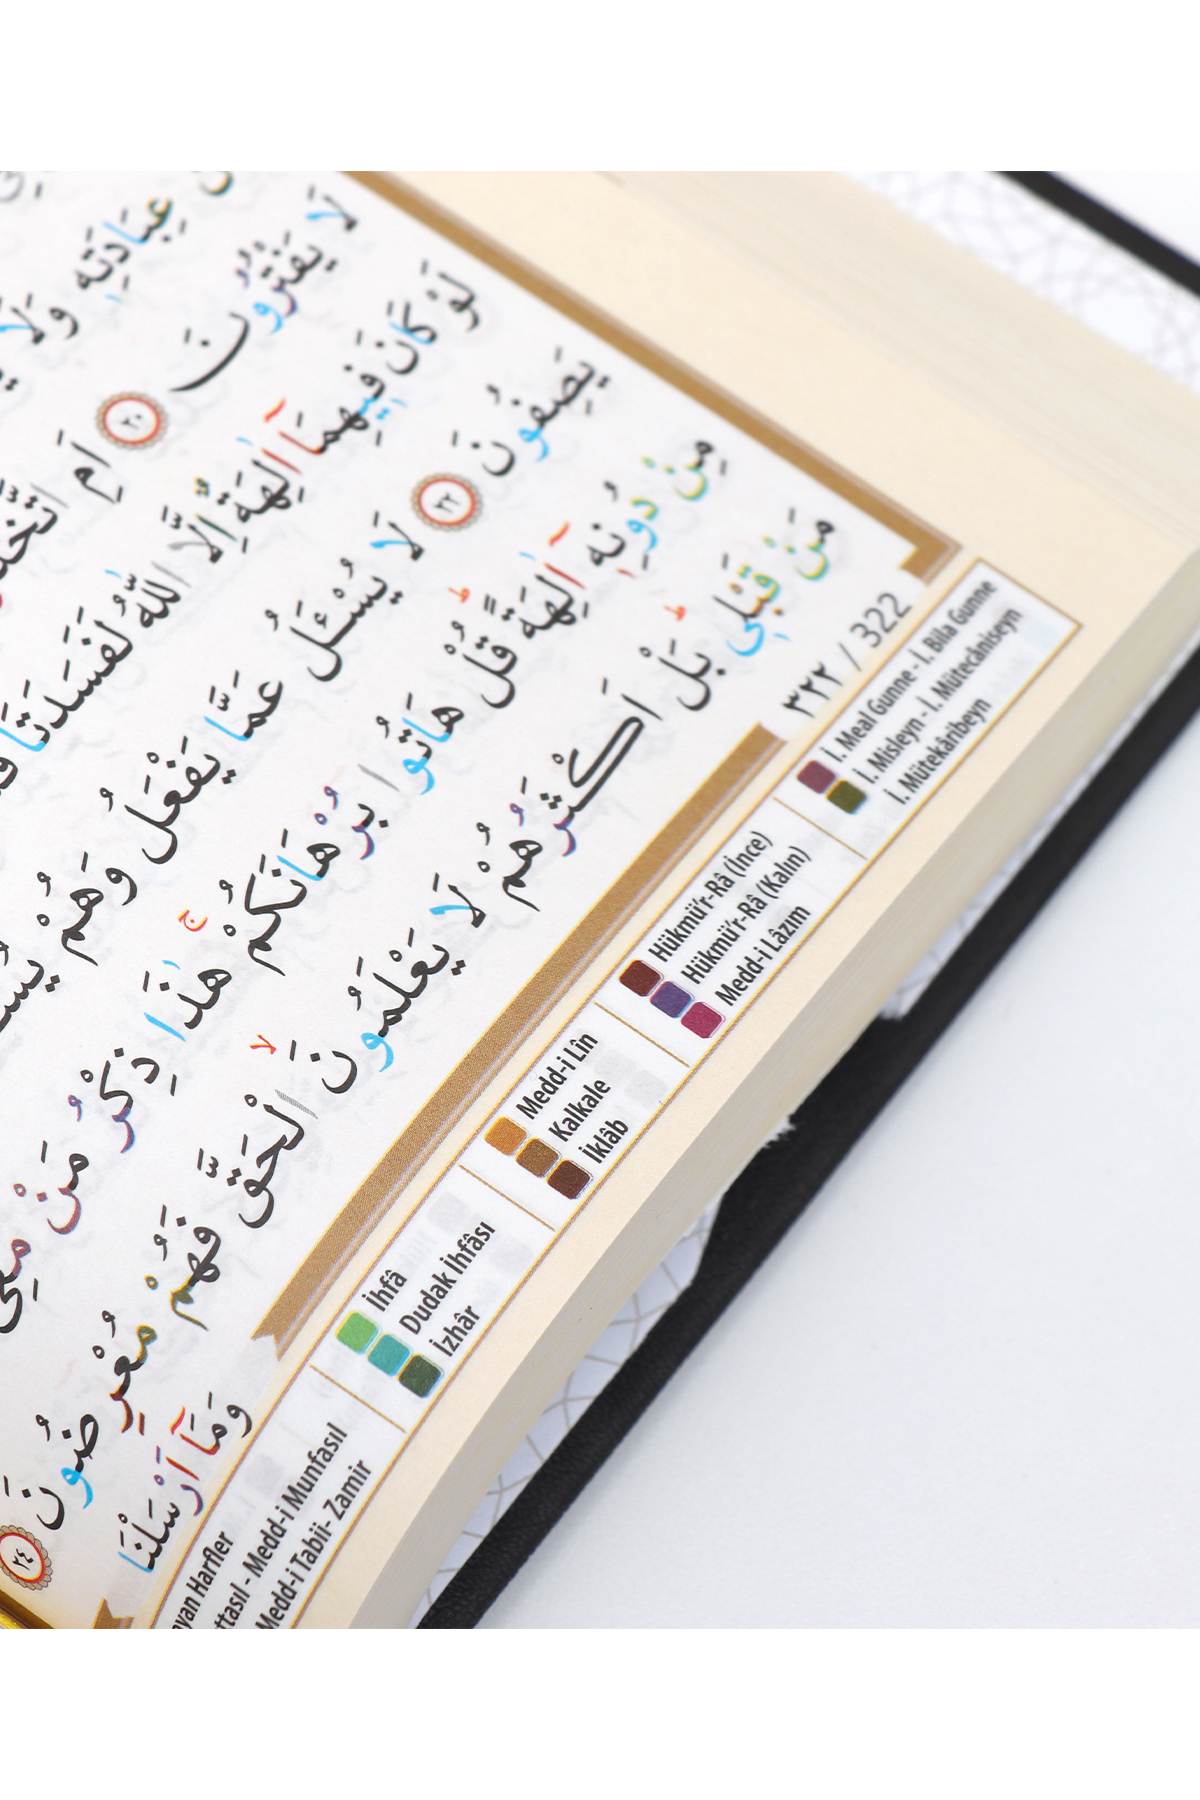 عِبَادَتِهِ وَلَا
لَا يَفْتُرُونَ ٢٠ اَمِ
لَوْ كَانَ فِيهِمَٓا اٰلِهَةٌ اِلَّا اللّٰهُ لَفَسَدَتَا
يَصِفُونَ ٢٢ لَا يُسْـَٔلُ عَمَّا يَفْعَلُ وَهُمْ
مِنْ دُونِهِ اٰلِهَةًۜ قُلْ هَاتُوا بُرْهَانَكُمْۚ هٰذَا ذِكْرُ مَنْ مَعِيَ
مَنْ قَبْلِيۜ بَلْ اَكْثَرُهُمْ لَا يَعْلَمُونَۙ الْحَقَّ فَهُمْ مُعْرِضُونَ ٢٤
وَمَٓا اَرْسَلْنَا
٣٢٢ / 322
Harfler
Medd-i Munfasıl
Medd-i Tabii- Zamir
İhfâ
Dudak İhfâsı
İzhâr
Medd-i Lîn
Kalkale
İklâb
Hükmü'r-Râ (İnce)
Hükmü'r-Râ (Kalın)
Medd-i Lâzım
İ. Meal Gunne - İ. Bila Gunne
İ. Misleyn - İ. Mütecâniseyn
İ. Mütekâribeyn